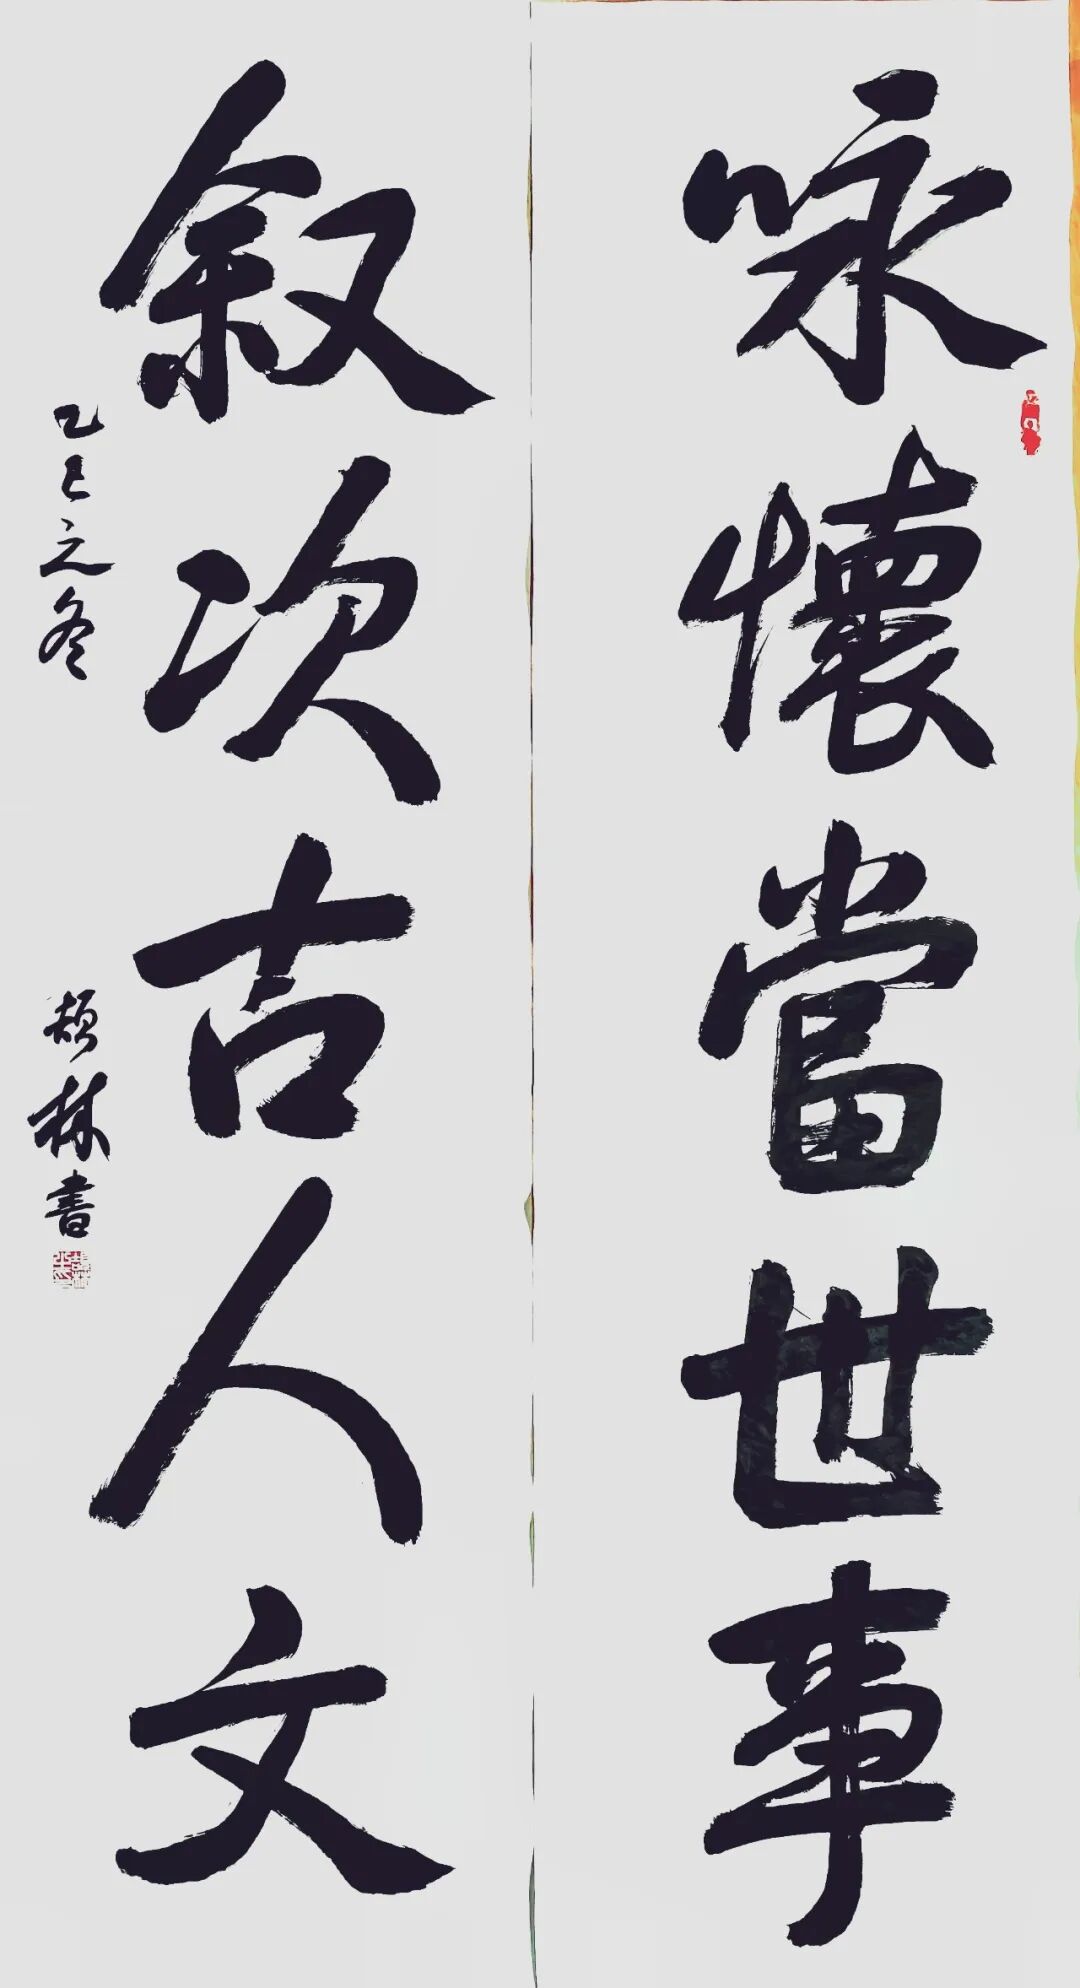 咏懷當世事
叙次古人文
乙巳之冬
林書